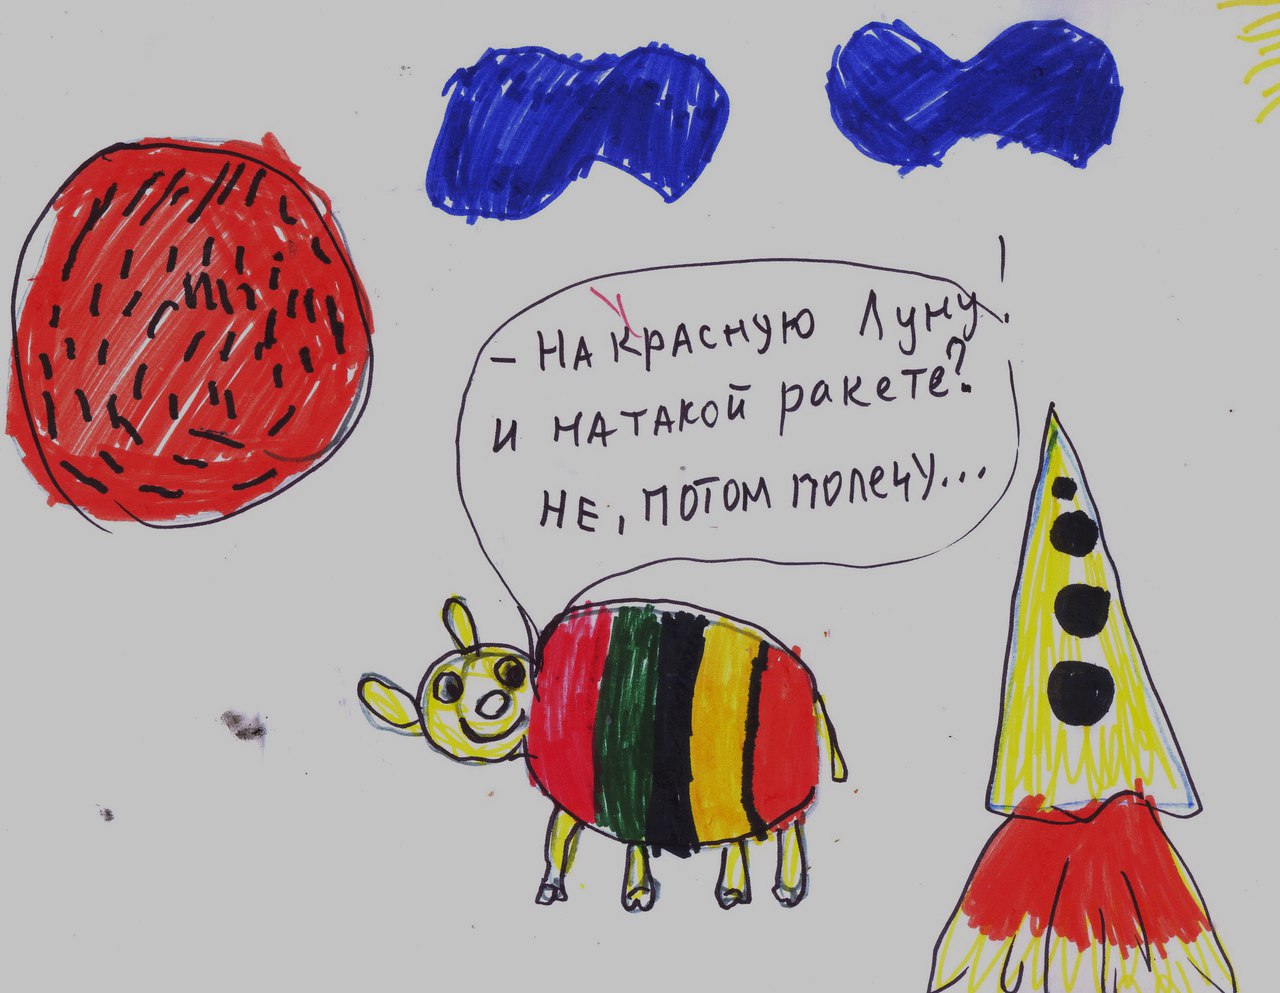 - НА КРАСНУЮ Луну!
И НА ТАКОЙ ракете?
НЕ, ПОТОМ ПОЛЕЧУ...